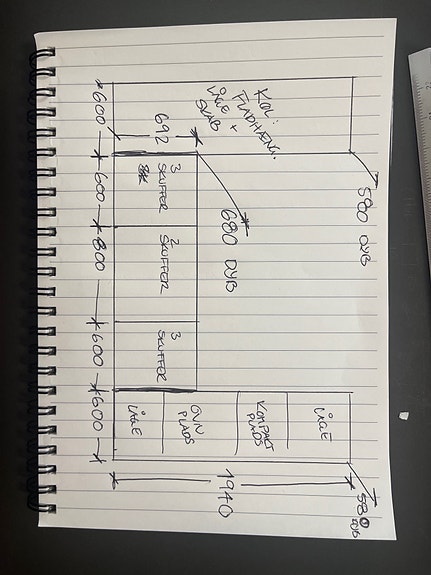 580 DYB
KØL:
LÅGE +
SKAB
692
680 DYB
3
SKUFFER
2
SKUFFER
3
SKUFFER
LÅGE
KOMPAKT
PLADS
OVN
PLADS
LÅGE
580
DYB
1940
600
600
800
600
600